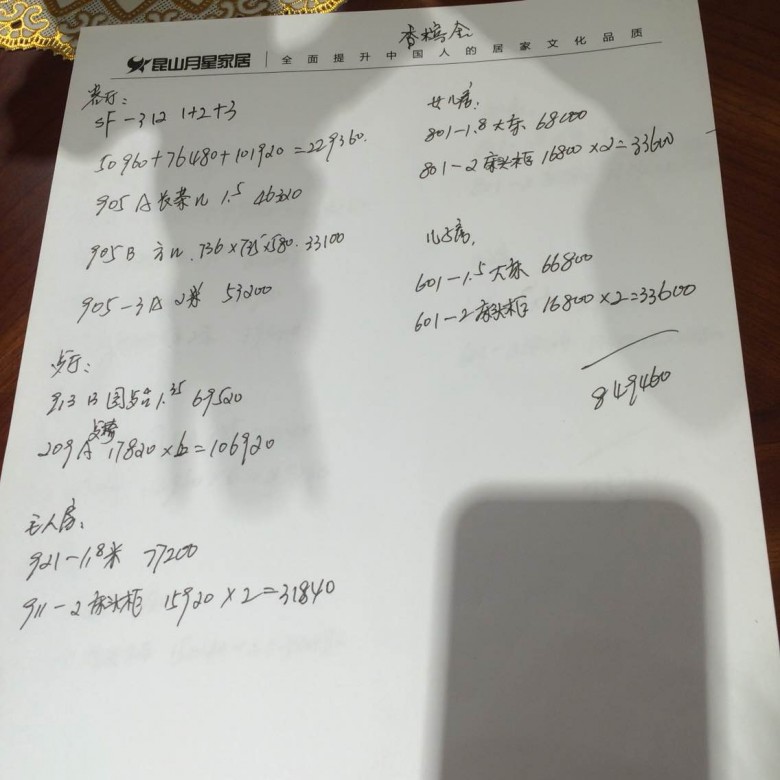 香槟金
昆山月星家居 全面提升中国人的居家文化品质
客厅:
SF-312 1+2+3
50960+76480+101920=229360.
905 A 长茶几 1.5 46320
905 B 方几 736×735×580. 33100
905-3A 2米 53200
餐厅:
913 B 圆餐台 1.35 69520
209A 餐椅 17820×6=106920
主人房:
921-1.8米 77200
911-2 床头柜 15920×2=31840
女儿房:
801-1.8大床 68000
801-2 床头柜 16800×2=33600
儿子房,
601-1.5大床 66800
601-2床头柜 16800×2=33600
849460